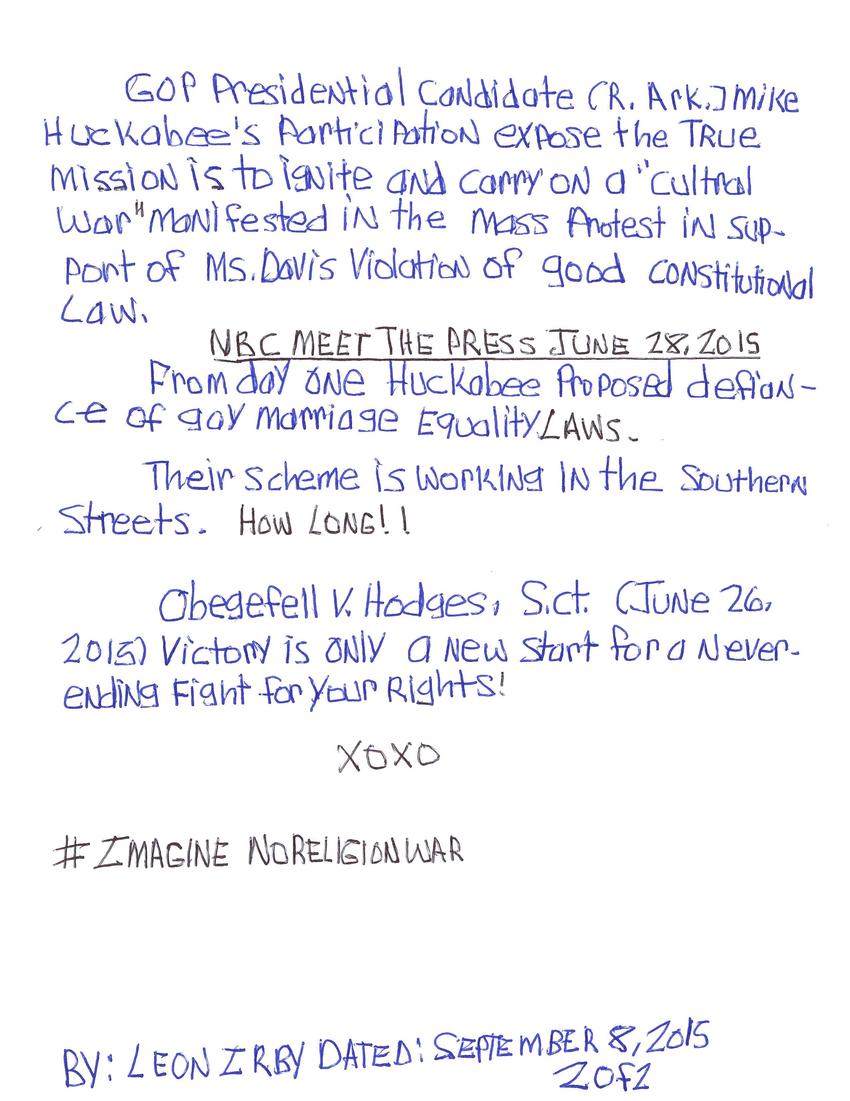 GOP Presidential Candidate (R. Ark.] Mike
Huckabee's Participation expose the TRUE
Mission is to ignite and carry on a "Cultral
War" manifested in the mass Protest in sup-
port of MS. Davis Violation of good constitutional
Law.
NBC MEET THE PRESS JUNE 28, 2015
From day one Huckabee Proposed defian-
ce of gay marriage Equality LAWS.
Their scheme is working in the Southern
Streets. HOW LONG!!
Obegefell V. Hodges, S.ct. (June 26,
2015) Victory is only a new start for a Never-
ending Fight for your Rights!
XOXO
#IMAGINE NORELIGIONWAR
BY: LEON IRBY DATED: SEPTEMBER 8, 2015
2 of 2